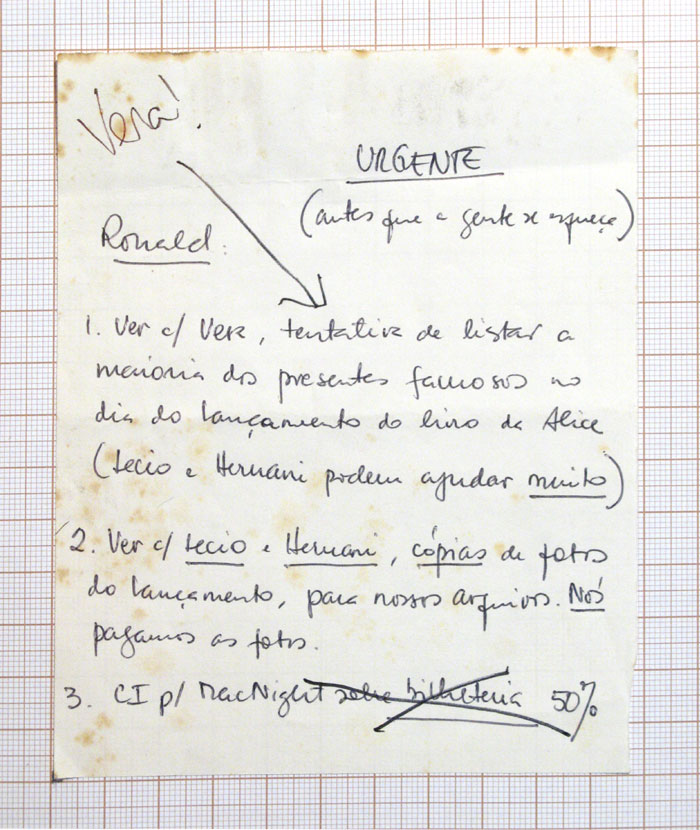 Vera!
URGENTE
(antes que a gente se esqueça)
Ronald:
1. Ver c/ Vera, tentativa de listar a
maioria dos presentes famosos no
dia do lançamento do livro da Alice
(Lecio e Hernani podem ajudar muito)
2. Ver c/ Lecio e Hernani, cópias de fotos
do lançamento, para nossos arquivos. Nós
pagamos as fotos.
3. CI p/ MacNight sobre bilheteria 50%